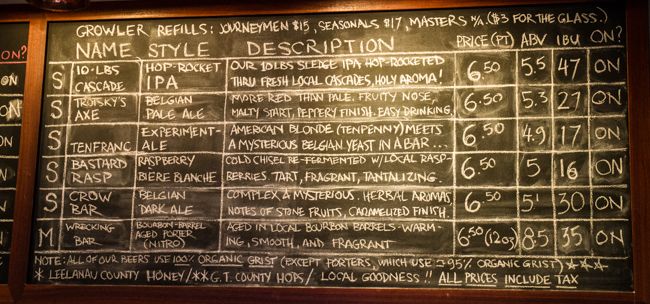 GROWLER REFILLS: JOURNEYMEN $15, SEASONALS $17, MASTERS N/A. ($3 FOR THE GLASS.)
NAME STYLE DESCRIPTION PRICE (PT) ABV IBU ON?
S 10-LBS CASCADE HOP-ROCKET IPA OUR 10 LBS SLEDGE IPA, HOP-ROCKETED THRU FRESH LOCAL CASCADES, HOLY AROMA! 6.50 5.5 47 ON
S TROTSKY'S AXE BELGIAN PALE ALE MORE RED THAN PALE. FRUITY NOSE, MALTY START, PEPPERY FINISH. EASY DRINKING. 6.50 5.3 27 ON
S TENFRANC EXPERIMENT-ALE AMERICAN BLONDE (TENPENNY) MEETS A MYSTERIOUS BELGIAN YEAST IN A BAR... 6.50 4.9 17 ON
S BASTARD RASP RASPBERRY BIERE BLANCHE COLD CHISEL RE-FERMENTED W/LOCAL RASP-BERRIES. TART, FRAGRANT, TANTALIZING. 6.50 5 16 ON
S CROW BAR BELGIAN DARK ALE COMPLEX & MYSTERIOUS. HERBAL AROMAS, NOTES OF STONE FRUITS, CARAMELIZED FINISH. 6.50 5! 30 ON
M WRECKING BAR BOURBON-BARREL AGED PORTER (NITRO) AGED IN LOCAL BOURBON BARRELS-WARM-ING, SMOOTH, AND FRAGRANT 6.50 (12oz) 8.5 35 ON
NOTE: ALL OF OUR BEERS USE 100% ORGANIC GRIST (EXCEPT PORTERS, WHICH USE ≈ 95% ORGANIC GRIST) ***
* LEELANAU COUNTY HONEY/** G.T. COUNTY HOPS/ LOCAL GOODNESS!! ALL PRICES INCLUDE TAX
ON?
ON
ON
ON
ON